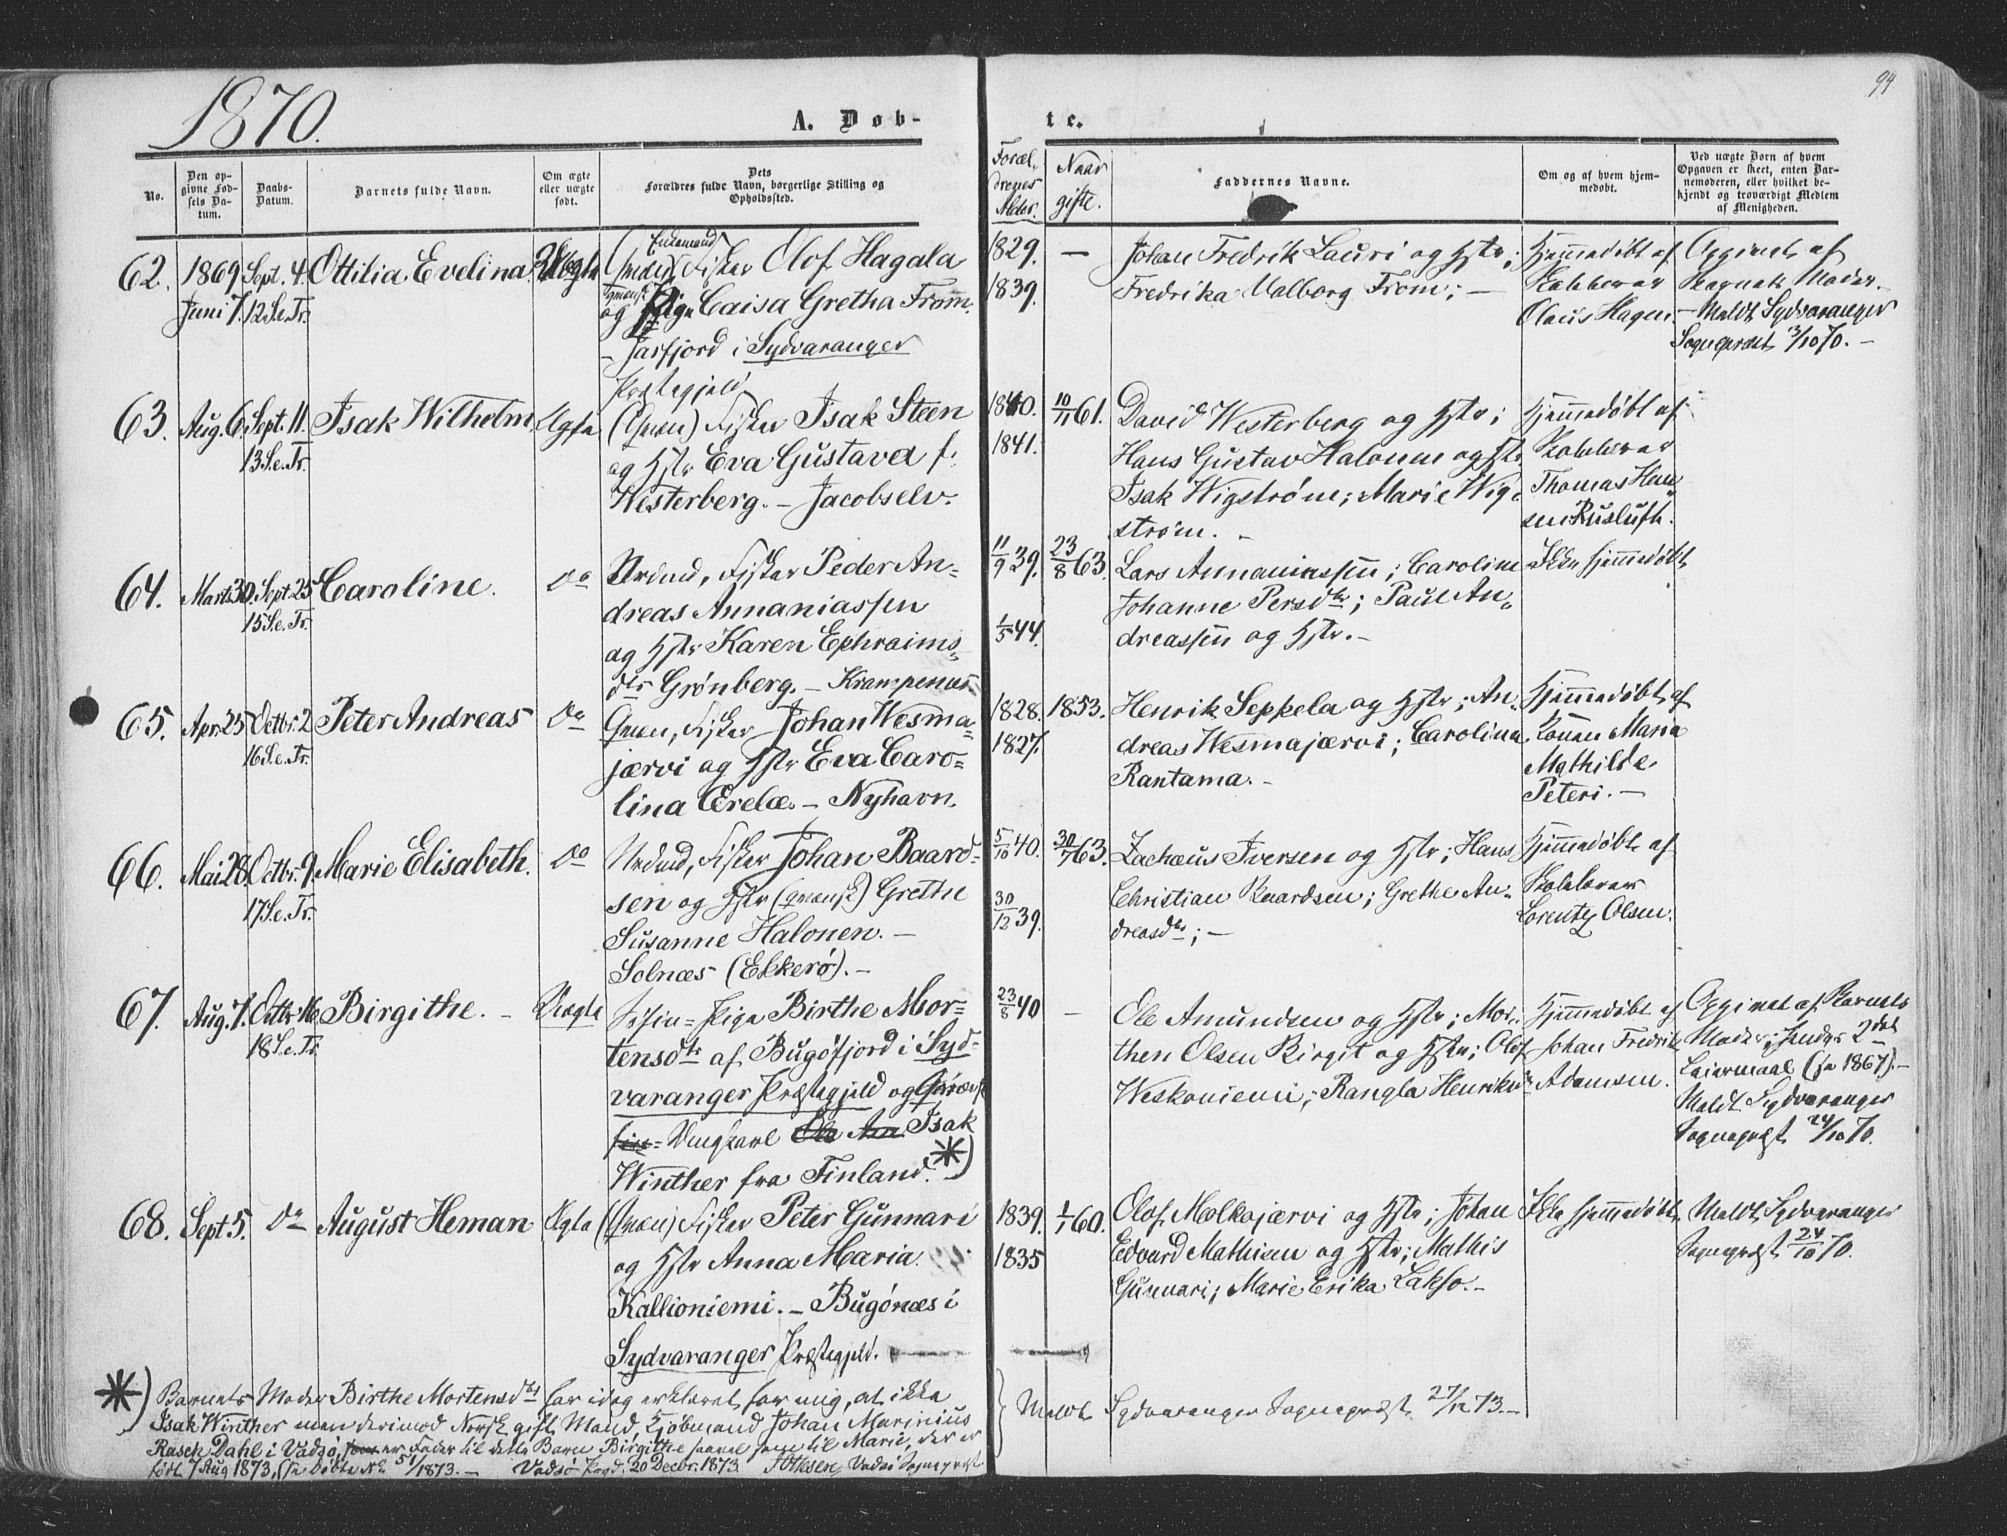 1870.
A. Døb-
te.
94
No.
Den op-
givne Fød-
sels Da-
tum.
Daabs-
Datum.
Barnets fulde Navn.
Om ægte
eller uægte
født.
Dets
Forældres fulde Navn, borgerlige Stilling og
Opholdssted.
Foræl-
drenes
Alder.
Naar
gifte.
Faddernes Navne.
Om og af hvem hjem-
medøbt.
Ved uægte Børn af hvem
Opgaven er skeet, enten Bar-
nemoderen, eller hvilket be-
kjendt og troværdigt Medlem
af Menigheden.
62. 1869 Juni 7. Sept. 4. 12 S. e. Tr.
Ottilia Evelina. Uægte
Enkemand
Fisker Olof Hagala
og Pige Caisa Gretha From.
- Jarfjord i Sydvaranger
Præstegjeld
1829. —
1839.
Johan Fredrik Lauri og Hstr;
Fredrika Valborg From; —
Hjemmedøbt af
Kokkevar
Olaus Hagen.
Opgivet af
Barnets Moder.
- Meldt Sydvaranger
Sognepræst 3/10 70. —
63. Aug. 6. Sept. 11. 13 S. e. Tr.
Isak Wilhelm. Ægte
(Qvæn) Fisker Isak Steen
og Hstr Eva Gustava f.
Westerberg. - Jacobselv.
1840. 10/11 61.
1841.
David Westerberg og Hstr;
Hans Gustav Halonen og Hstr
Isak Wigstrøm; Marie Wig-
strøm. -
Hjemmedøbt af
Thomas Han
sen Rusluft.
64. Marts 30. Sept. 25 15 S. e. Tr.
Caroline. do
Nordmd, Fisker Peder An-
dreas Annaniassen
og Hstr Karen Ephraims-
dtr Grønberg. - Krampenæs.
11/9 39. 23/8 63.
1/5 44.
Lars Annaniassen; Caroline
Johanne Persdtr; Paul An-
dreassen og Hstr. -
Ikke hjemmedøbt
65. Apr. 25 Octbr. 2 16 S. e. Tr.
Peter Andreas do
Qvæn, Fisker Johan Wesma-
jærvi og Hstr Eva Caro-
lina Erelæ. - Nyhavn.
1828. 1853.
1827.
Henrik Seppela og Hstr; An-
dreas Wesmajærvi; Carolina
Rantama. -
Hjemmedøbt af
Konen Maria
Mathilde
Peteri. —
66. Mai 28. Octbr. 9. 17 S. e. Tr.
Marie Elisabeth. do
Nordmd, Fisker Johan Baard-
sen og Hstr (qvænsk) Grethe
Susanne Halonen. —
Solnæs (Ekkerø). —
5/10 40. 30/7 63.
30/12 39.
Zachæus Iversen og Hstr; Hans
Christian Baardsen; Grethe An-
dreasdtr; —
Hjemmedøbt af
Lorentz Olsen.
67. Aug. 7. Octbr 16 18 S. e. Tr.
Birgithe. - Uægte
Pige Birthe Mor-
tensdtr af Bugøfjord i Syd-
varanger Præstegjeld og
Ungkarl Isak
Winther fra Finland. *)
23/8 40 —
Ole Amundsen og Hstr; Mor-
then Olsen Birgit og Hstr; Olof
Weskoniemi; Rangla Henriksdr
Hjemmedøbt af
Johan Fredrik
Adamsen.
Opgivet af Barnets
Moder; hendes 2det
Leiermaal (se 1867). —
Meldt Sydvaranger
Sognepræst 24/10 70.
68. Sept 5. do August Heman Ægte
(Qvæn) Fisker Peter Gunnari
og Hstr Anna Maria
Kallioniemi. - Bugønæs i
Sydvaranger Præstegjeld.
1839. 1/1 60.
1835
Olof Molkojærvi og Hstr; Johan
Edvard Mathisen og Hstr; Mathis
Gunnari; Marie Erika Lakso. -
Ikke hjemmedøbt.
Meldt Sydvaranger
Sognepræst 24/10 70.
*) Barnets Moder Birthe Mortensdtr har idag erklæret for mig, at ikke
Isak Winther men derimod Norsk gift Mand, Kjøbmand Johan Marinius
Rasch Dahl i Vadsø, er Fader til dette Barn Birgithe saavel som til Marie, der er
født 7 Aug 1873, (se Døbte No 51/1873. — Vadsø Prgd. 20 Decbr. 1873. Vadsø Sognepræst
Meldt Sydvaranger Sognepræst 27/12 73. —